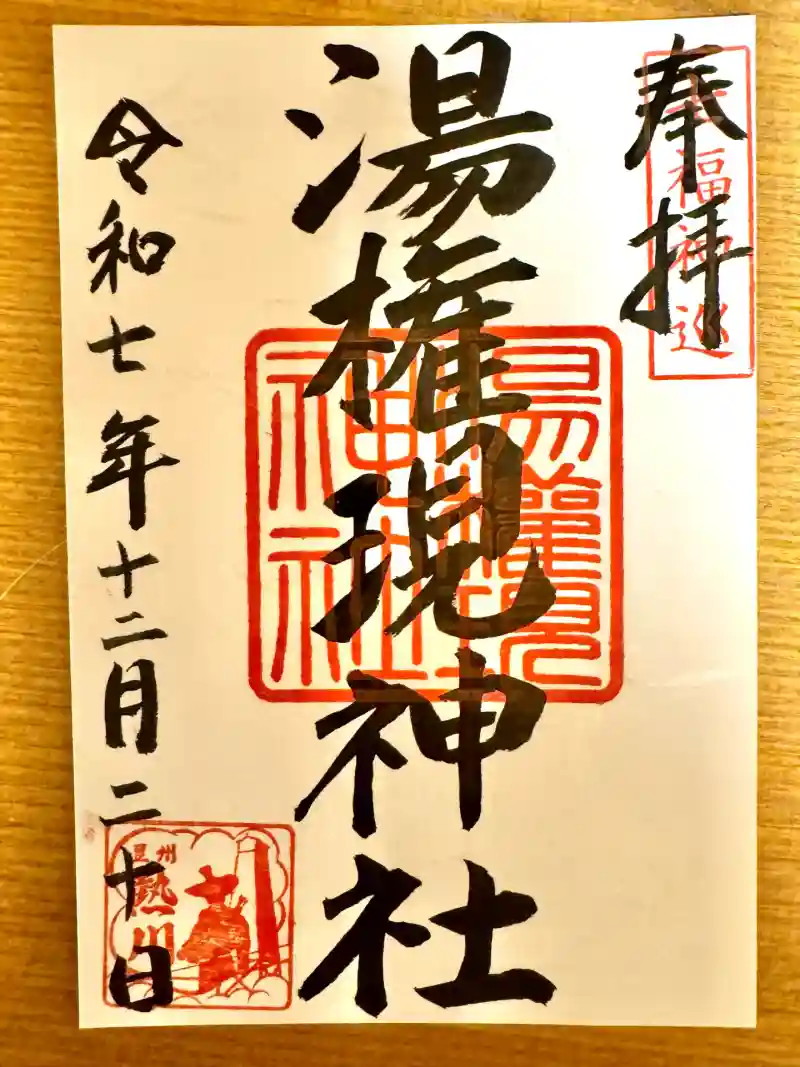 奉拝
七福神巡
湯権現神社
湯権現神社
令和七年十二月二十日
豆州
熱川